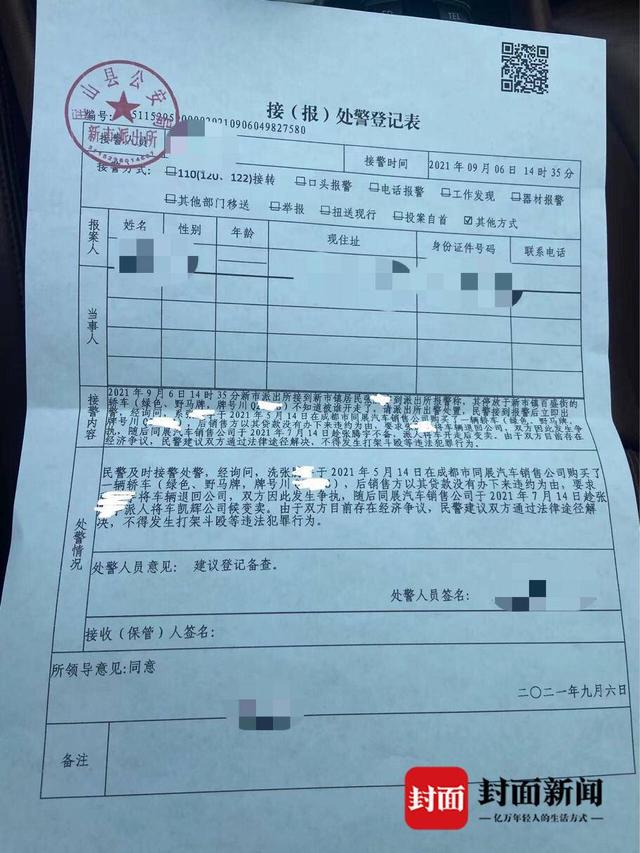 接（报）处警登记表
山县公安
新市派出所
编号：
0210906049827580
接警人员
接警时间
2021年09月06日 14时35分
接警方式：
□110(120、122)接转 □口头报警 □电话报警 □工作发现 □器材报警
□其他部门移送 □举报 □扭送现行 □投案自首 ☑其他方式
报案人
姓名 性别 年龄 现住址 身份证件号码 联系电话
当事人
接警内容
2021年9月6日14时35分新市派出所接到新市镇居民张
到派出所报警称，其停放于新市镇百盛街的
轿车（绿色、野马牌，牌号川
）不知道被谁开走了，请派出所出警处置，民警接到报警后立即出
警。经询问，系
于2021年5月14日在成都市同展汽车销售公司购买了一辆轿车（绿色、野马牌，
牌号川
），后销售方以其贷款没有办下来违约为由，要求
将车辆退回公司，双方因此发生争
执，随后同展汽车销售公司于2021年7月14日趁张腾宇不备，派人将车开走后变卖。由于双方目前存在
经济争议，民警建议双方通过法律途径解决，不得发生打架斗殴等违法犯罪行为。
处警情况
民警及时接警处警，经询问，冼张
于2021年5月14日在成都市同展汽车销售公司购买了
一辆轿车（绿色、野马牌，牌号川
），后销售方以其贷款没有办下来违约为由，要求
张
将车辆退回公司，双方因此发生争执，随后同展汽车销售公司于2021年7月14日趁张
派人将车凯辉公司侯变卖。由于双方目前存在经济争议，民警建议双方通过法律途径解
决，不得发生打架斗殴等违法犯罪行为。
处警人员意见： 建议登记备查。
处警人员签名：
接收（保管）人签名：
所领导意见：同意
二〇二一年九月六日
备注
封面 封面新闻
亿万年轻人的生活方式